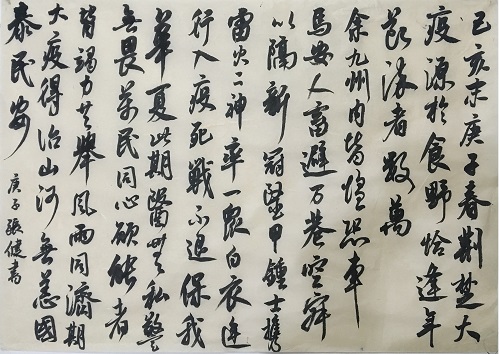 己亥末庚子春荆楚大
疫源於食野恰逢年
染者数萬
余九州内皆惶恐車
馬安人畜避万巷空寂
以隔新冠堅甲鍾士攜
雷火二神率一眾白衣逆
行入疫死戰不退保我
華夏此期醫無私警
無畏萬民同心欲能者
皆竭力共舉風雨同濟期
大疫得治山河無恙國
泰民安
庚子張健書